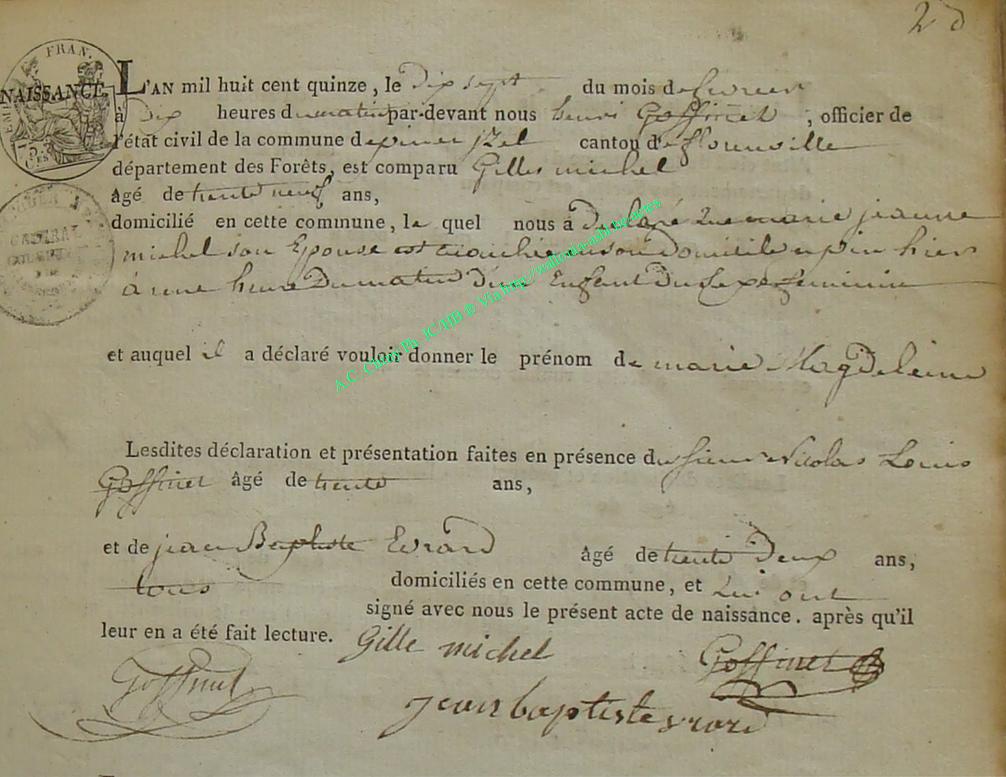 2 d
FRAN.
NAISSANCE. L'AN mil huit cent quinze, le Dix sept du mois de fevrier
à Dix heures du matin par-devant nous henri Goffinet, officier de
l'état civil de la commune de pin et izel canton de florenville
département des Forêts, est comparu Gilles michel
âgé de trente neuf ans,
domicilié en cette commune, le quel nous à Declaré Que marie jeanne
michel son Epouse est accouchie en son Domicile a pin hier
à une heure Du matin D'un Enfent Du sexe feminin
et auquel il a déclaré vouloir donner le prénom de marie Magdeleine
Lesdites déclaration et présentation faites en présence du sieur Nicolas Louis
Goffinet âgé de trente ans,
et de jean Baptiste Evrard âgé de trente Deux ans,
tous domiciliés en cette commune, et Qui ont
signé avec nous le présent acte de naissance. après qu'il
leur en a été fait lecture. Gille michel Goffinet
Goffinet jean baptiste evrard